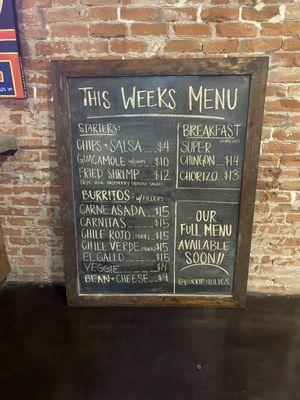 THIS WEEKS MENU
STARTERS:
CHIPS + SALSA $4
GUACAMOLE W/CHIPS $10
FRIED SHRIMP $12
BURRITOS W/FILLERS
CARNE ASADA $15
CARNITAS $15
CHILE ROJO (PORK) $15
CHILE VERDE (PORK) $15
EL GALLO $15
VEGGIE $14
BEAN + CHEESE $9
BREAKFAST
(BURRITOS)
SUPER
CHINGON $14
CHORIZO $13
OUR
FULL MENU
AVAILABLE
SOON!!
@BURRITOHOLICS